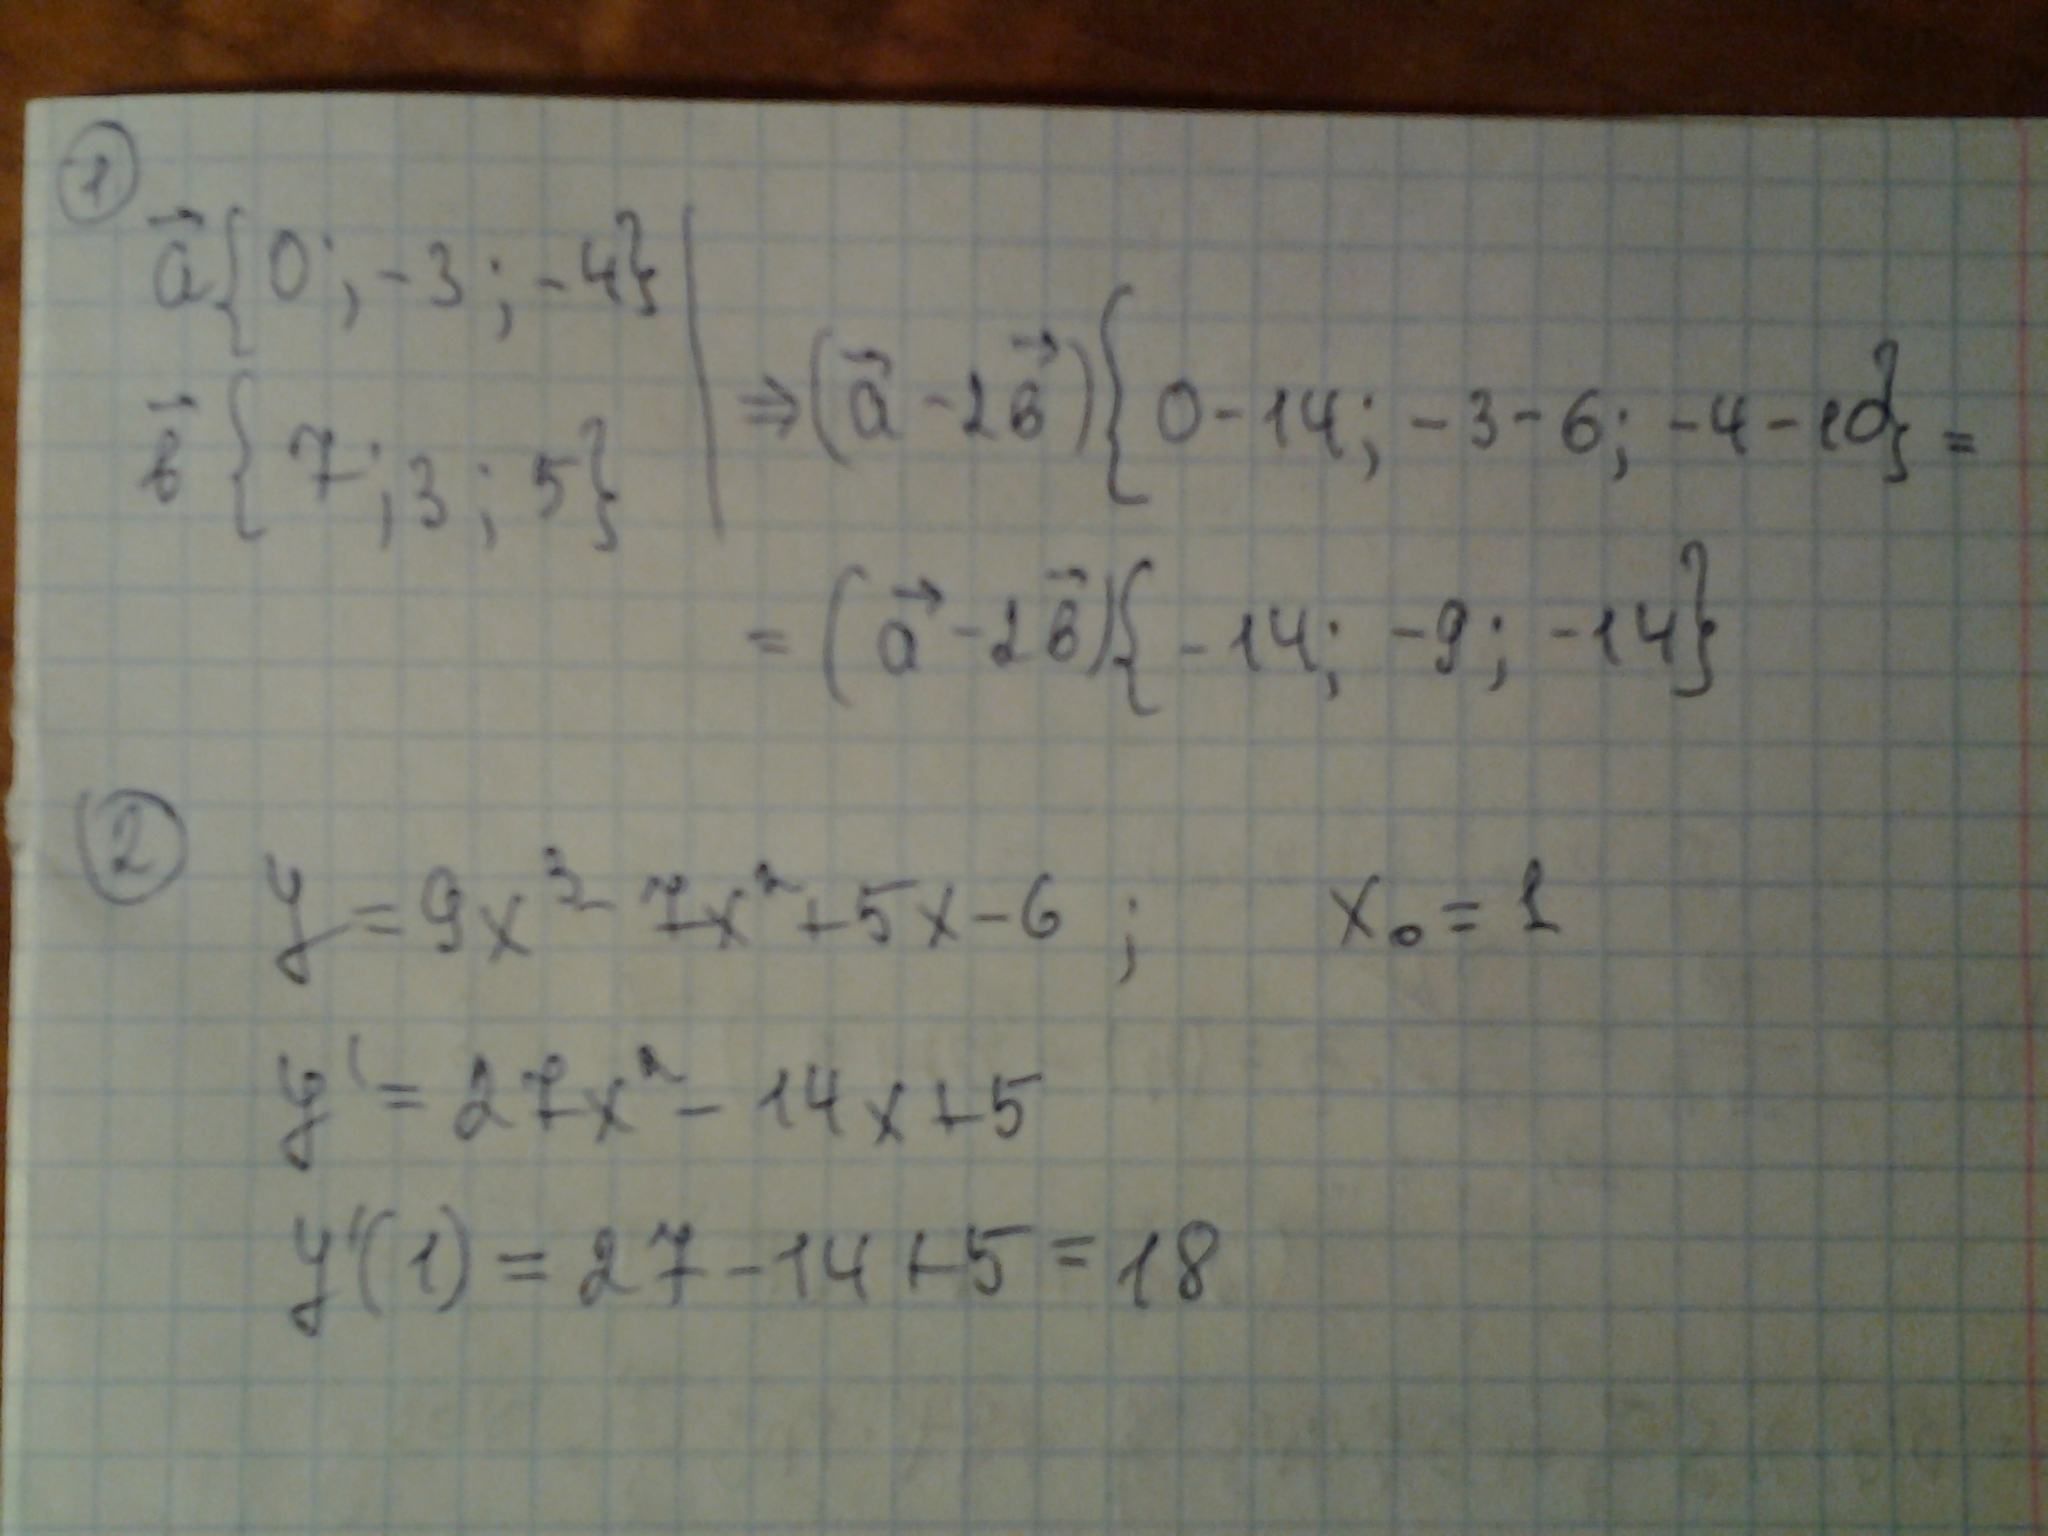 1
a⃗{0; -3; -4}
⇒(a⃗ - 2в⃗){0-14; -3-6; -4-10} =
в⃗{7; 3; 5}
= (a⃗ - 2в⃗){-14; -9; -14}
2
y = 9x³ - 7x² + 5x - 6 ; x₀ = 1
y' = 27x² - 14x + 5
y'(1) = 27 - 14 + 5 = 18